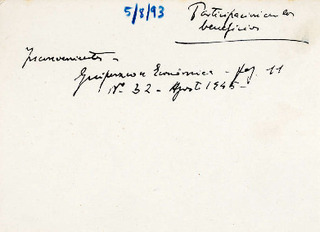 5/8/93
Participación en los
beneficios
Inconvenientes -
Guipuzcoa Económica - pag. 11
Nº 32 - Agost 1945 -